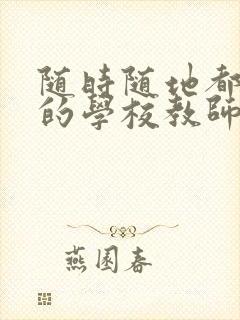 随時随地都
的學校教師
燕園春